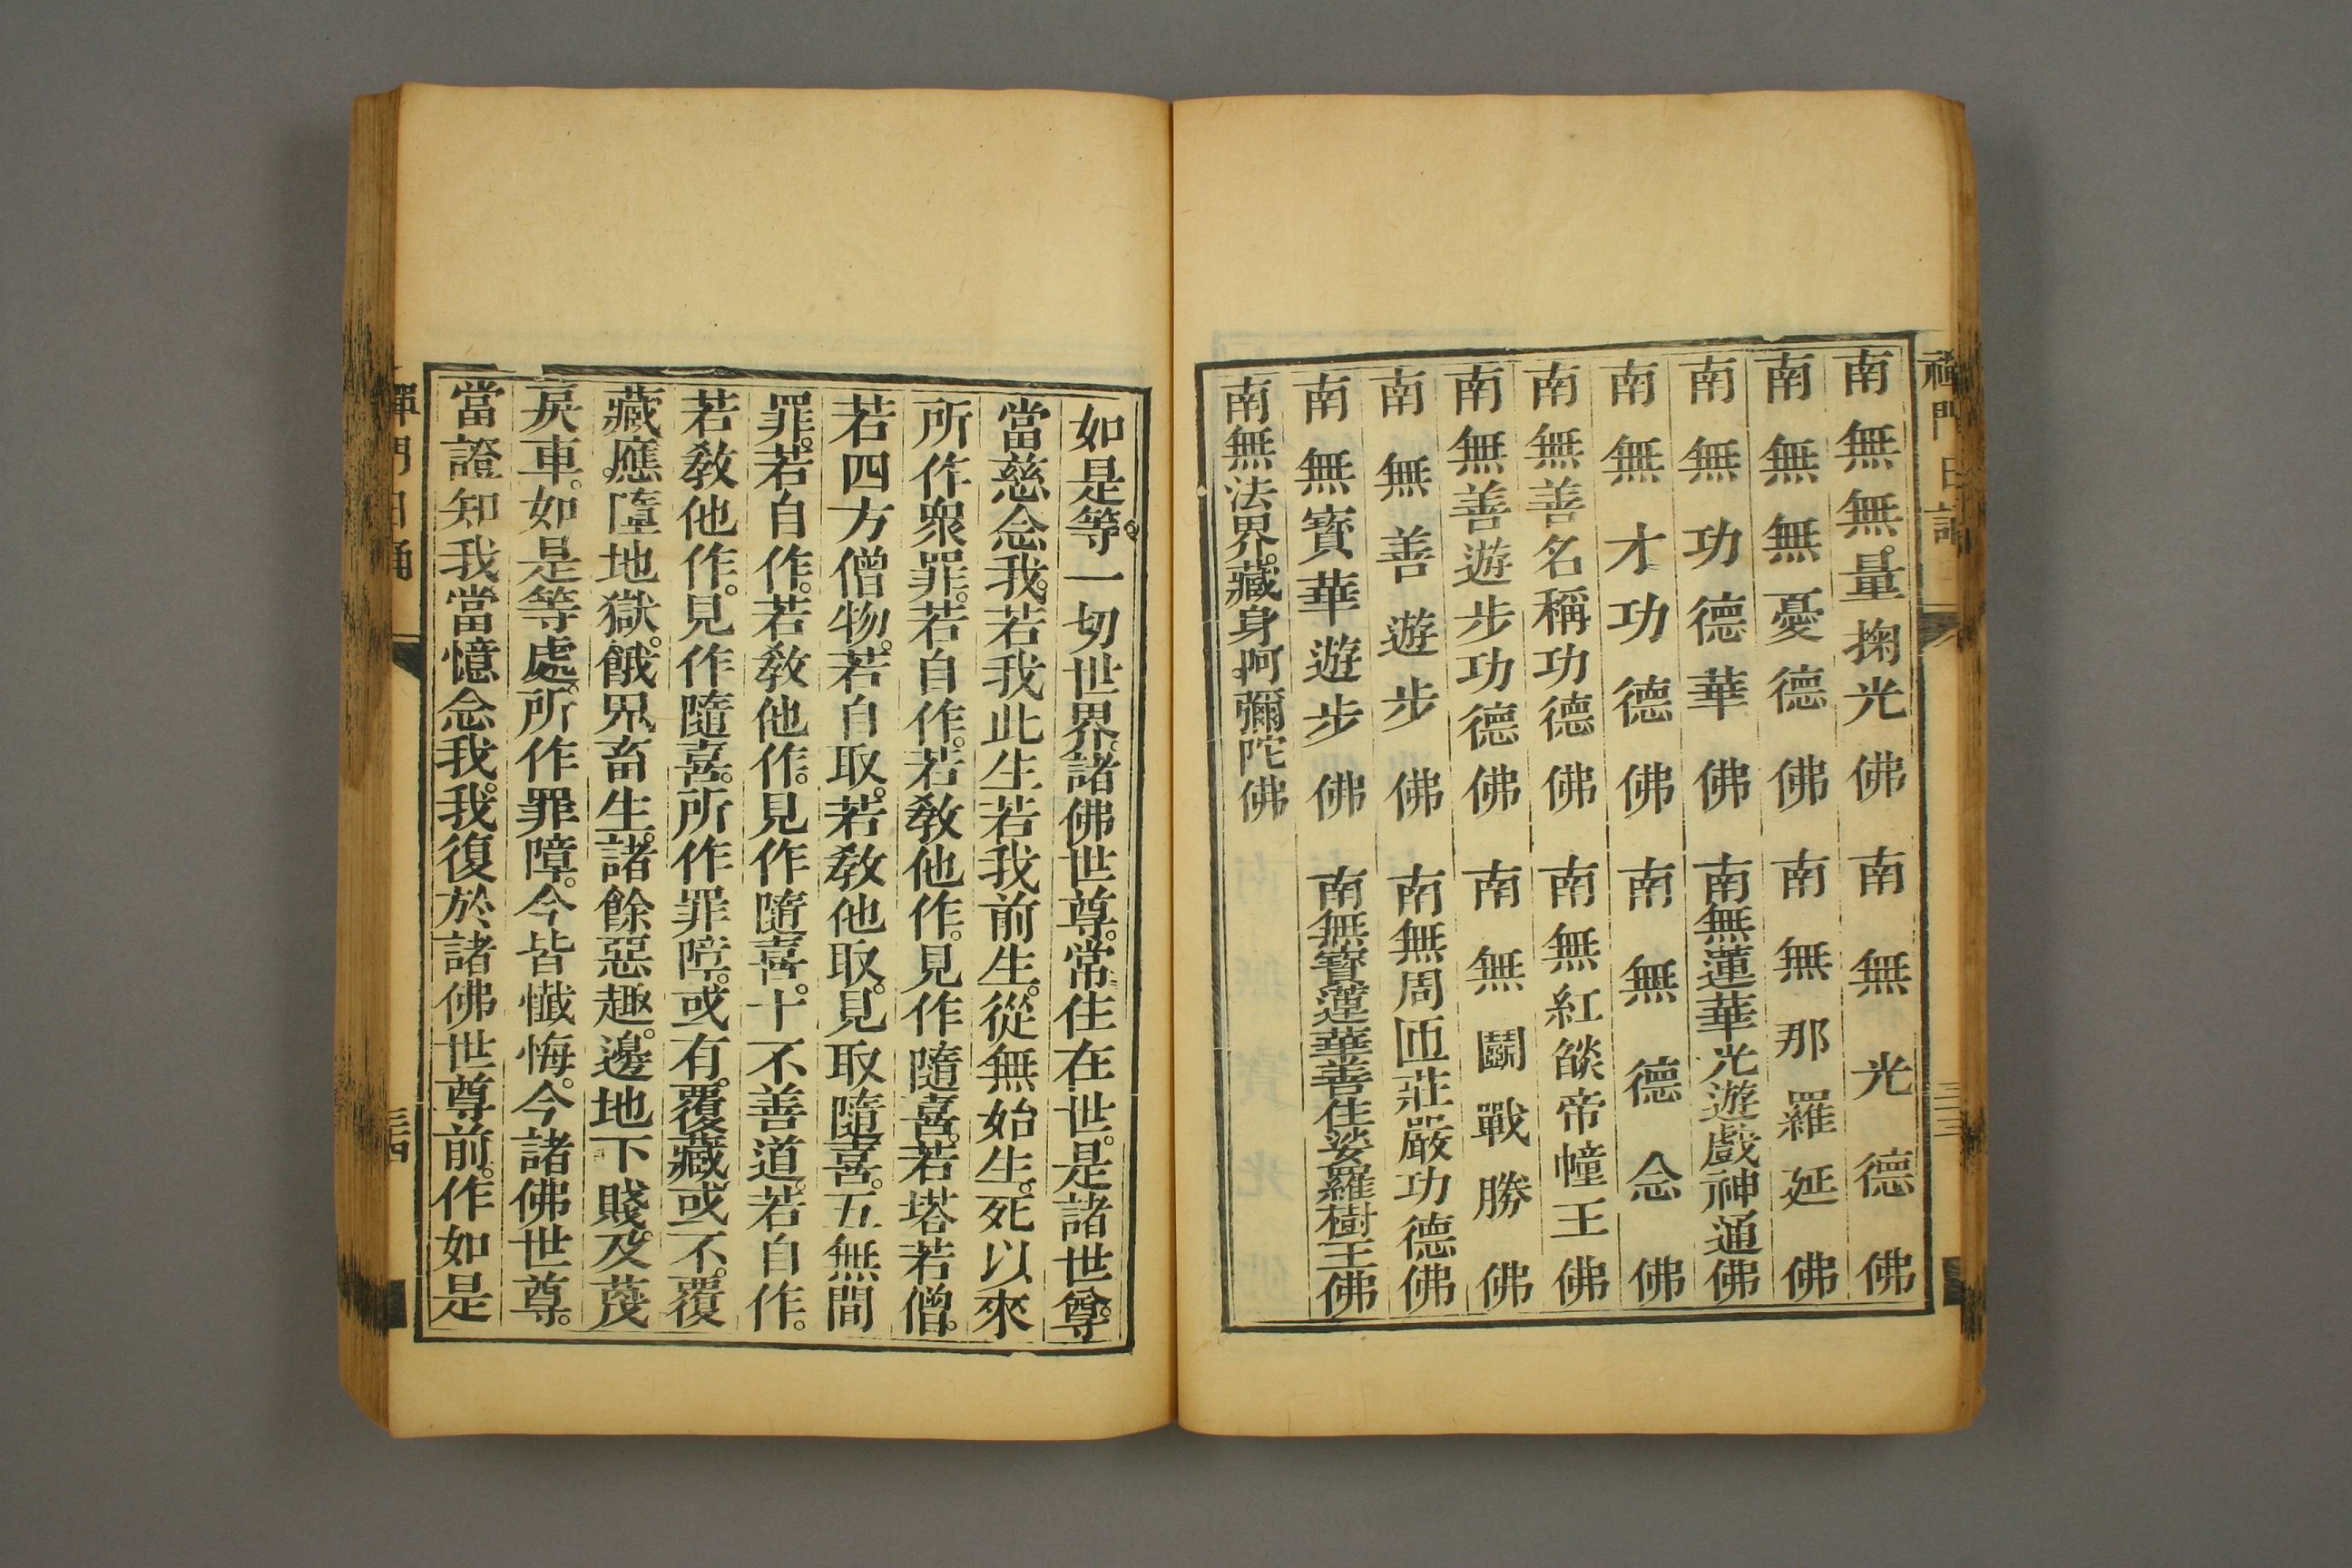 禪門日誦
三三
南無無量掬光佛　南無光德佛
南無無憂德佛　南無那羅延佛
南無功德華佛　南無蓮華光遊戲神通佛
南無才功德佛　南無德念佛
南無善名稱功德佛　南無紅燄帝幢王佛
南無善遊步功德佛　南無鬭戰勝佛
南無善遊步佛　南無周匝莊嚴功德佛
南無寳華遊步佛　南無寳蓮華善住娑羅樹王佛
南無法界。藏身。阿彌陀佛
如是等。一切世界。諸佛世尊。常住在世。是諸世尊。
當慈念我。若我此生。若我前生。從無始生。死以來
所作衆罪。若自作。若敎他作。見作隨喜。若塔若僧。
若四方僧物。若自取。若敎他取。見取隨喜。五無間
罪。若自作。若敎他作。見作隨喜。十不善道。若自作。
若敎他作。見作隨喜。所作罪障。或有。覆藏。或不。覆
藏。應墮地獄。餓鬼。畜生。諸餘惡趣。邊地下賤。及蔑
戾車。如是等處。所作罪障。今皆懺悔。今諸佛世尊。
當證知我。當憶念我。我復於諸佛世尊前。作如是
禪門日誦
三四